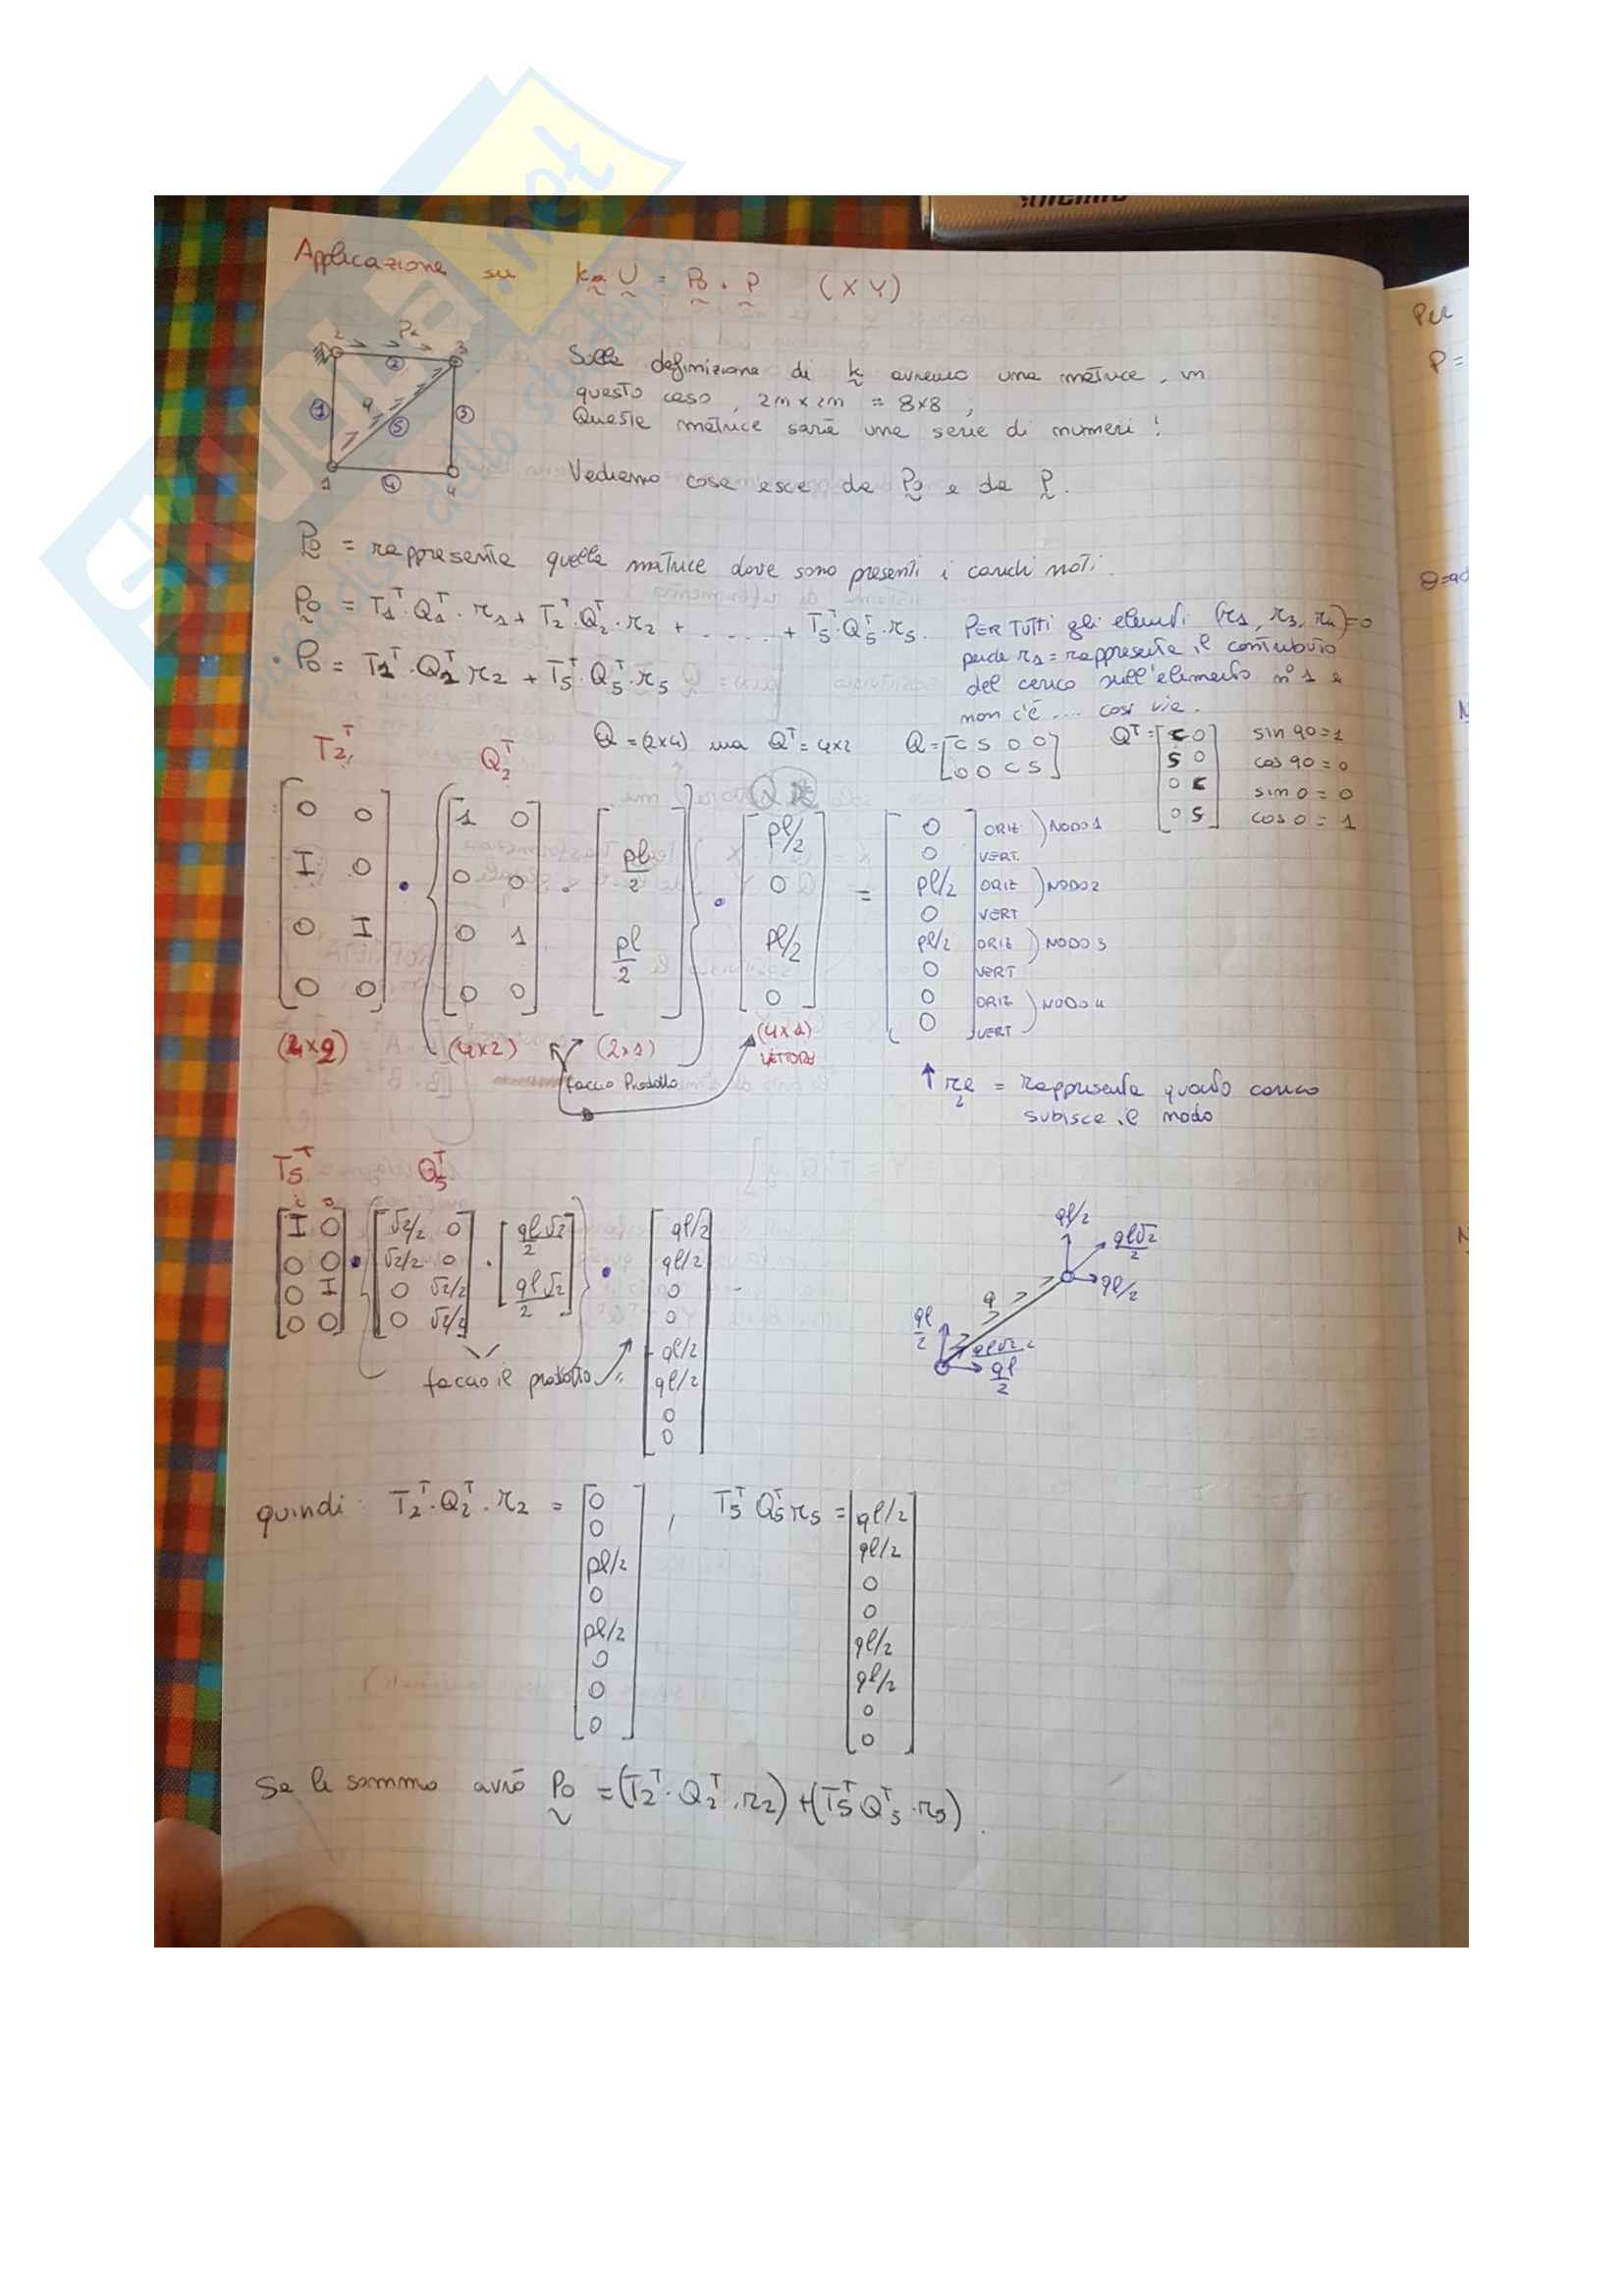 SKUOLA.net
paradiso dello studente
Applicazione su k U = P0 + P (X Y)
P2
2 3
②
① q ③
⑤
1 ④ 4
Sulla definizione di k avremo una matrice, in
questo caso, 2n x 2n = 8x8,
Questa matrice sarà una serie di numeri!
Vediamo cosa esce da P0 e da P.
P0 = rappresenta quella matrice dove sono presenti i carichi noti.
P0 = T1^T · Q1^T · r1 + T2^T · Q2^T · r2 + ..... + T5^T · Q5^T · r5.
• P0 = T2^T · Q2^T r2 + T5^T · Q5^T · r5
PER TUTTI gli elementi (r1, r3, r4)=0
perché r1 = rappresenta il contributo
del carico sull'elemento n°1 e
non c'è .... così via.
T2^T Q2^T
Q = (2x4) ma Q^T = 4x2
Q = [C S 0 0
0 0 C S]
Q^T = [C 0
S 0
0 C
0 S]
sin 90 = 1
cos 90 = 0
sin 0 = 0
cos 0 = 1
[0 0
I 0
0 I
0 0]
•
{[1 0
0 0
0 1
0 0]
·
[pl/2
pl/2]}
•
[pl/2
0
pl/2
0]
=
[0 ORIZ
0 VERT.
NODO 1
pl/2 ORIZ
0 VERT
NODO 2
pl/2 ORIZ
0 VERT
NODO 3
0 ORIZ
0] VERT
NODO 4
(4x2) (2x1)
(4x1)
VETTORE
faccio Prodotto
↑ r2 = Rappresenta quanto carico
subisce il nodo
T5^T Q5^T
[I 0
0 0
0 I
0 0]
•
{[√2/2 0
√2/2 0
0 √2/2
0 √2/2]
·
[ql√2/2
ql√2/2]}
•
[ql/2
ql/2
0
0
ql/2
ql/2
0
0]
faccio il prodotto
ql/2
ql√2/2
ql/2
q
ql/2
ql√2/2
ql/2
quindi: T2^T · Q2^T · r2 =
[0
0
pl/2
0
pl/2
0
0
0]
, T5^T Q5^T r5 =
[ql/2
ql/2
0
0
ql/2
ql/2
0
0]
Se le sommo avrò P0 = (T2^T · Q2^T · r2) + (T5^T Q5^T · r5).
Per
P =